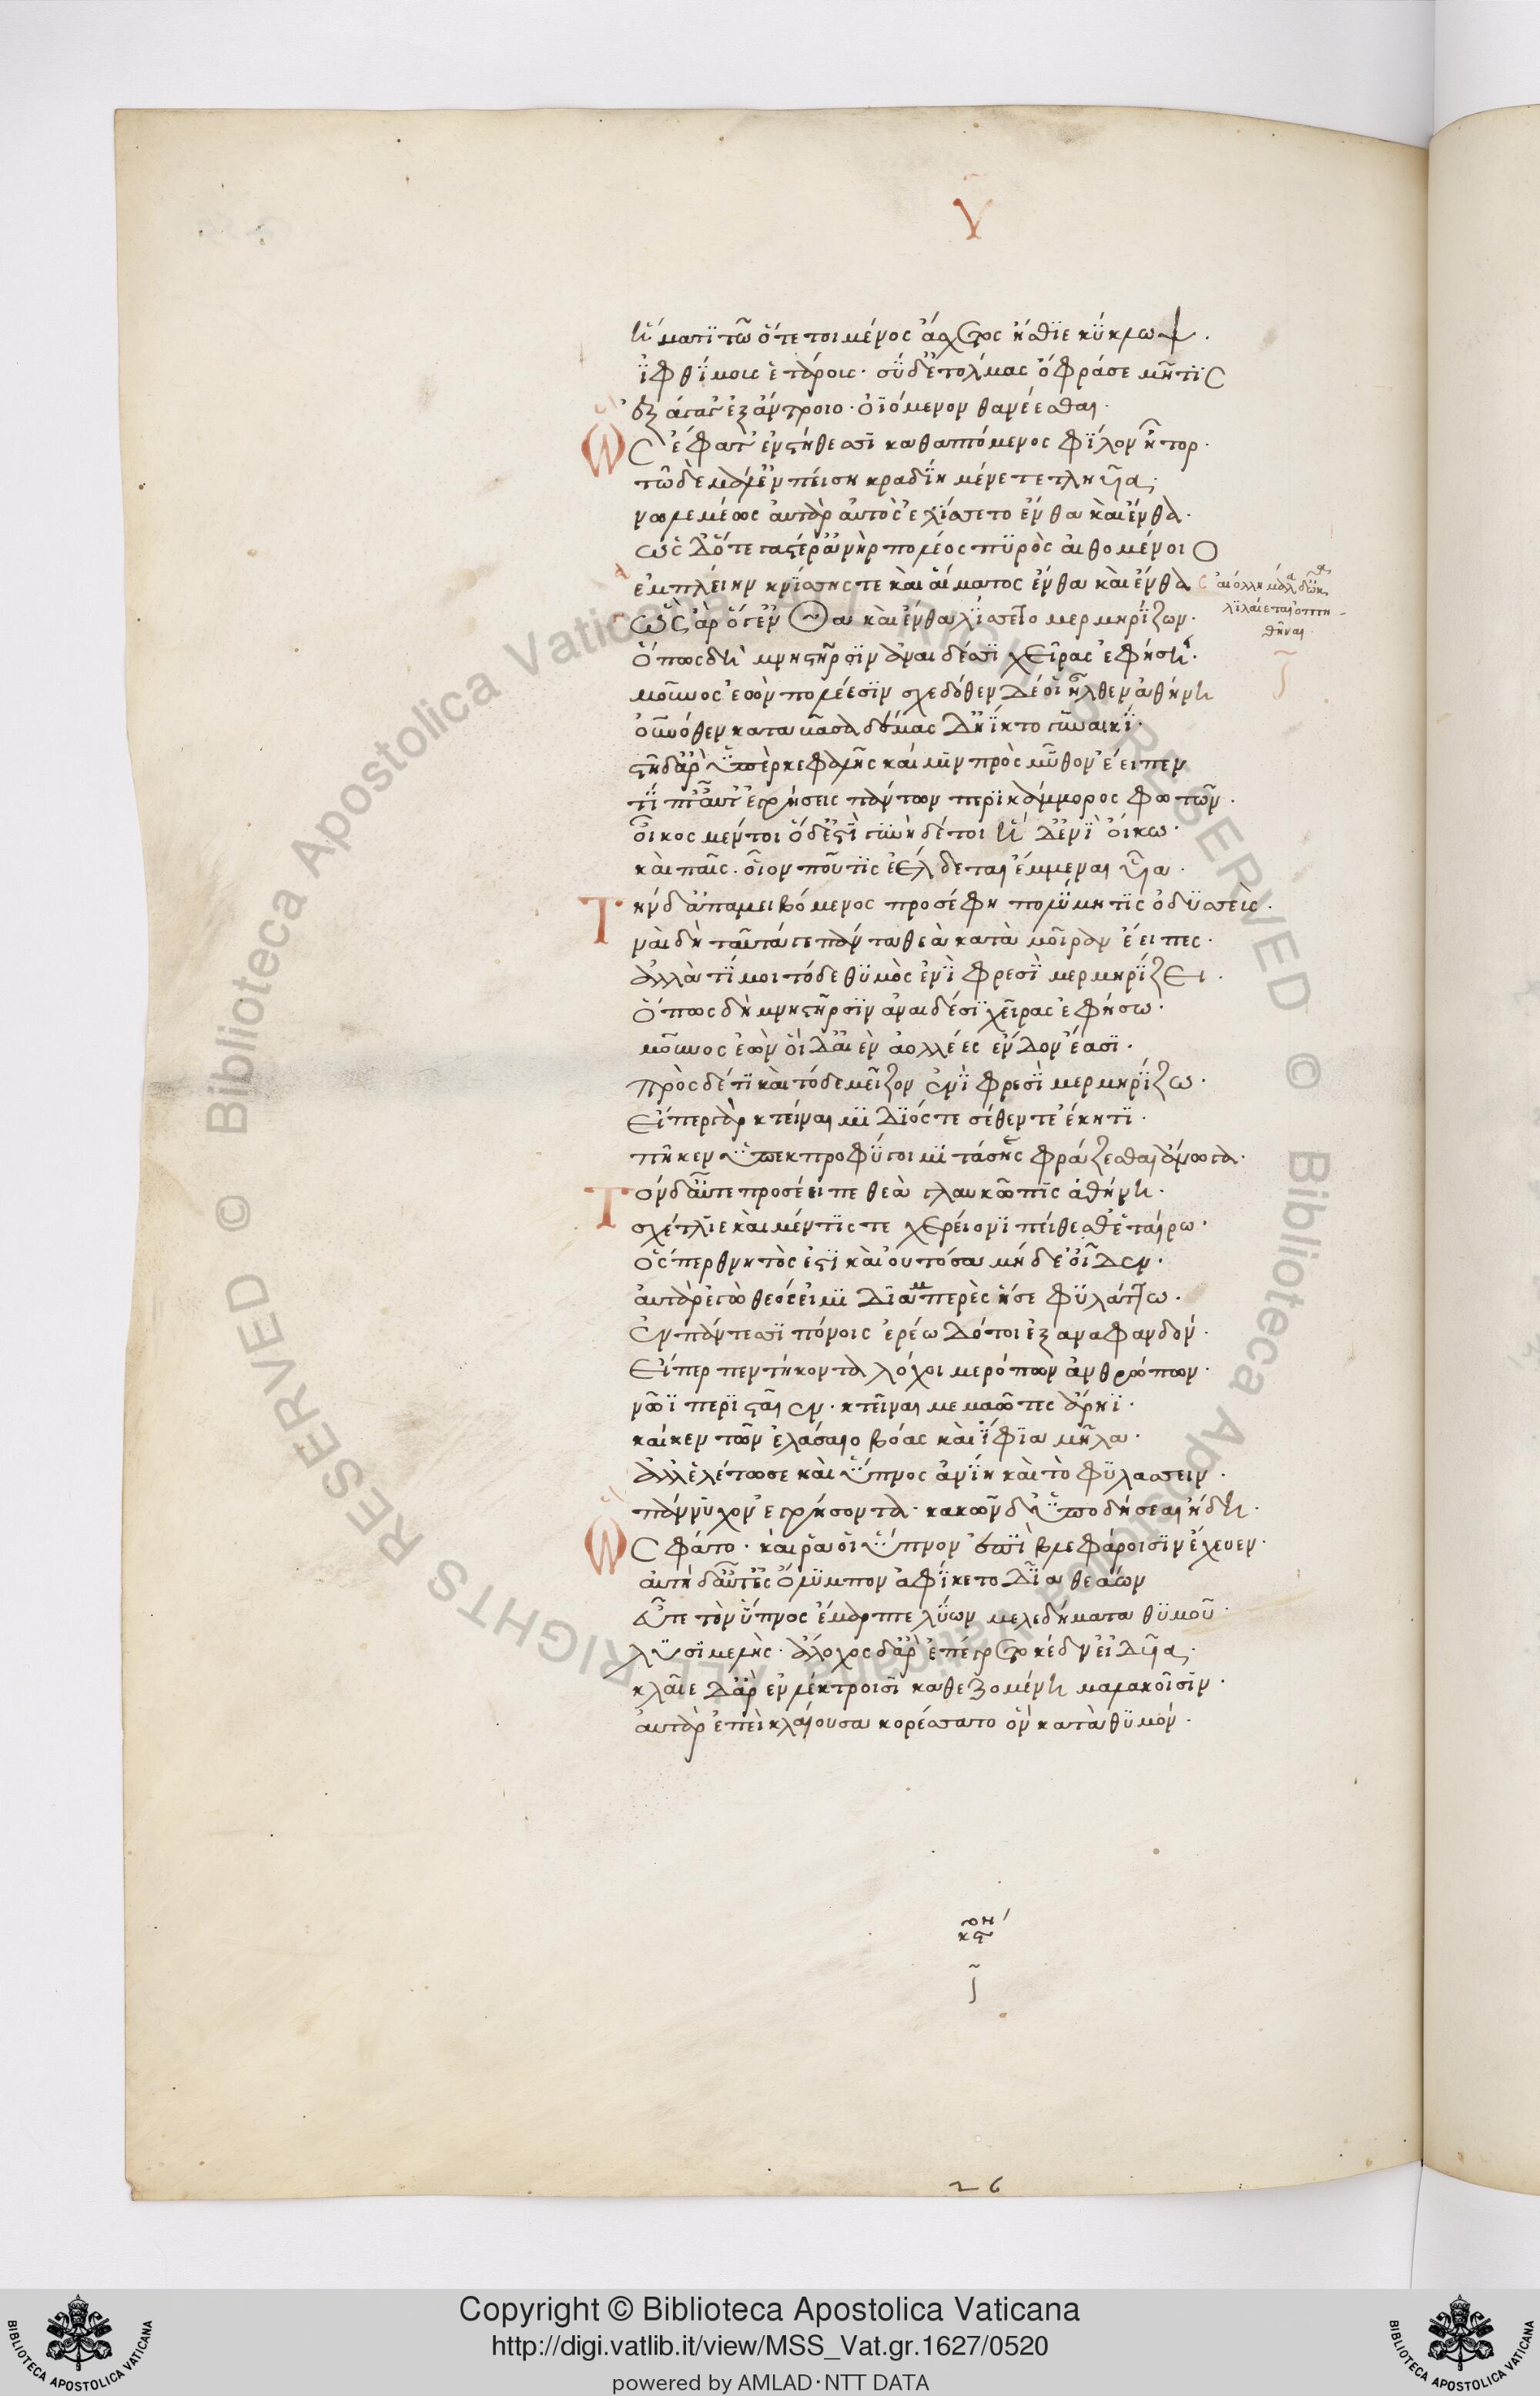 υ
ἤματι τῶ ὅτε τοι μένος ἄσχετος ἤσθιε κύκλωψ.
ἰφθίμοις ἑτάροις· σὺ δ' ἐτόλμας ὄφρά σε μῆτις
ἐξάγαγ' ἐξ ἄντροιο· ὀϊόμενον θανέεσθαι·
Ὣς ἔφατ' ἐν στήθεσσι καθαπτόμενος φίλον ἦτορ·
τῶ δὲ μάλ' ἐν πείση κραδίη μένε τετληυῖα;
νωλεμέως ἀυτὰρ ἀυτὸς ἐλίσσετο ἔνθα καὶ ἔνθα·
ὡς δ' ὅτε γαστέρ' ἀνὴρ πολέος πυρὸς αἰθομένοιο
ἐμπλείην κνίσσης τε καὶ αἵματος ἔνθα καὶ ἔνθα
αἰόλλη μάλα δ' ὦκα
λιλαίεται ὀπτη
θῆναι
ὣς ἄρ' ὅγ' ἔνθα καὶ ἔνθα λίσσετο μερμηρίζων·
ὅπως δὴ μνηστῆρσιν ἀναιδέσσι χεῖρας ἐφήση·
μοῦνος ἐὼν πολέεσιν σχεδόθεν δέ οἱ ἦλθεν ἀθήνη
οὐρανόθεν καταβᾶσα δέμας δ' ἤϊκτο γυναικί·
στῆ δ' ἄρ' ὑπὲρ κεφαλῆς καί μιν πρὸς μῦθον ἔειπεν
τί πτ' αὖτ' ἐγρήσεις πάντων περὶ κάμμορος φωτῶν.
οἶκος μέν τοι ὅδ' ἐστὶ γυνὴ δέ τοι ἥδ' ἐνὶ οἴκω·
καὶ παῖς. οἷον πού τις ἐέλδεται ἔμμεναι υἷα.
Τὴν δ' ἀπαμειβόμενος προσέφη πολύμητις ὀδυσσεύς.
ναὶ δὴ ταῦτά γε πάντα θεὰ κατὰ μοῖραν ἔειπες.
ἀλλά τί μοι τόδε θυμὸς ἐνὶ φρεσὶ μερμηρίζει.
ὅπως δὴ μνηστῆρσιν ἀναιδέσι χεῖρας ἐφήσω·
μοῦνος ἐὼν ὁι δ' αἰὲν ἀολλέες ἔνδον ἔασι.
πρὸς δέ τι καὶ τόδε μεῖζον ἐνὶ φρεσὶ μερμηρίζω.
εἴπερ γὰρ κτείναιμι διός τε σέθεν τε ἕκητι.
πῆ κεν ὑπεκπροφύγοιμι τά σῆς φράζεσθαι ἄνωγα.
Τὸν δ' αὖτε προσέειπε θεὰ γλαυκῶπις ἀθήνη.
σχέτλιε καὶ μέν τις τε χερείονι πείθεθ' ἑταίρω.
ὅς περ θνητός ἐστι καὶ οὐ τόσα μήδεα οἶδεν.
ἀυτὰρ ἐγὼ θεός εἰμι διαμπερὲς ἥ σε φυλάττω.
ἐν πάντεσσι πόνοις ἐρέω δέ τοι ἐξαναφανδόν.
εἴπερ πεντήκοντα λόχοι μερόπων ἀνθρώπων.
νῶϊ περισταῖεν. κτεῖναι μεμαῶτες ἄρηϊ.
καί κεν τῶν ἐλάσαιο βόας καὶ ἴφια μῆλα.
ἀλλ' ἑλέτω σε καὶ ὕπνος ἀνίη καὶ τὸ φυλάσσειν.
πάννυχον ἐγρήσοντα· κακῶν δ' ὑποδήσεαι ἤδη.
Ὣς φάτο· καί ῥά οἱ ὕπνον ἐπὶ βλεφάροισιν ἔχευεν.
ἀυτὴ δ' αὖτ' ἐς ὄλυμπον ἀφίκετο δῖα θεάων
εὖτε τὸν ὕπνος ἔμαρπτε λύων μελεδήματα θυμοῦ·
λυσιμελής· ἄλοχος δ' ἄρ' ἐπέγρετο κέδν' εἰδυῖα;
κλαῖε δ' ἄρ' ἐν λέκτροισι καθεζομένη μαλακοῖσιν·
ἀυτὰρ ἐπεὶ κλαίουσα κορέσσατο ὃν κατὰ θυμόν·
26